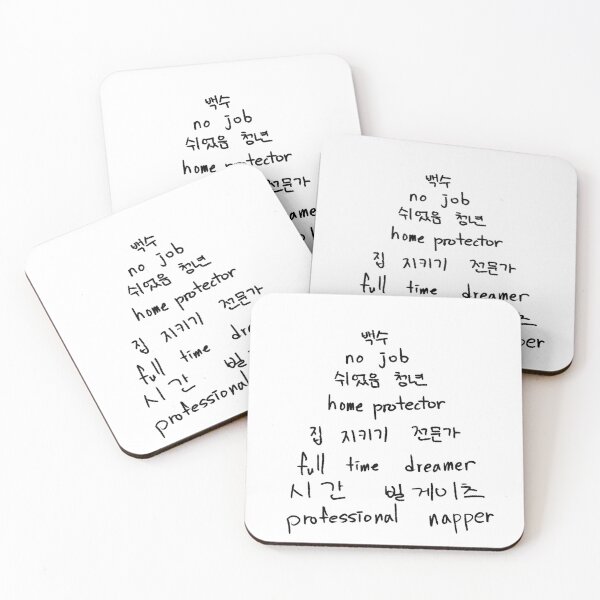 백수
no job
쉬었음 청년
home protector
백수
no job
쉬었음 청년
home protector
집 지키기 전문가
full time dreamer
백수
no job
쉬었음 청년
home protector
집 지키기 전문가
full time
시간
professional
백수
no job
쉬었음 청년
home protector
집 지키기 전문가
full time dreamer
시간 빌게이츠
professional napper